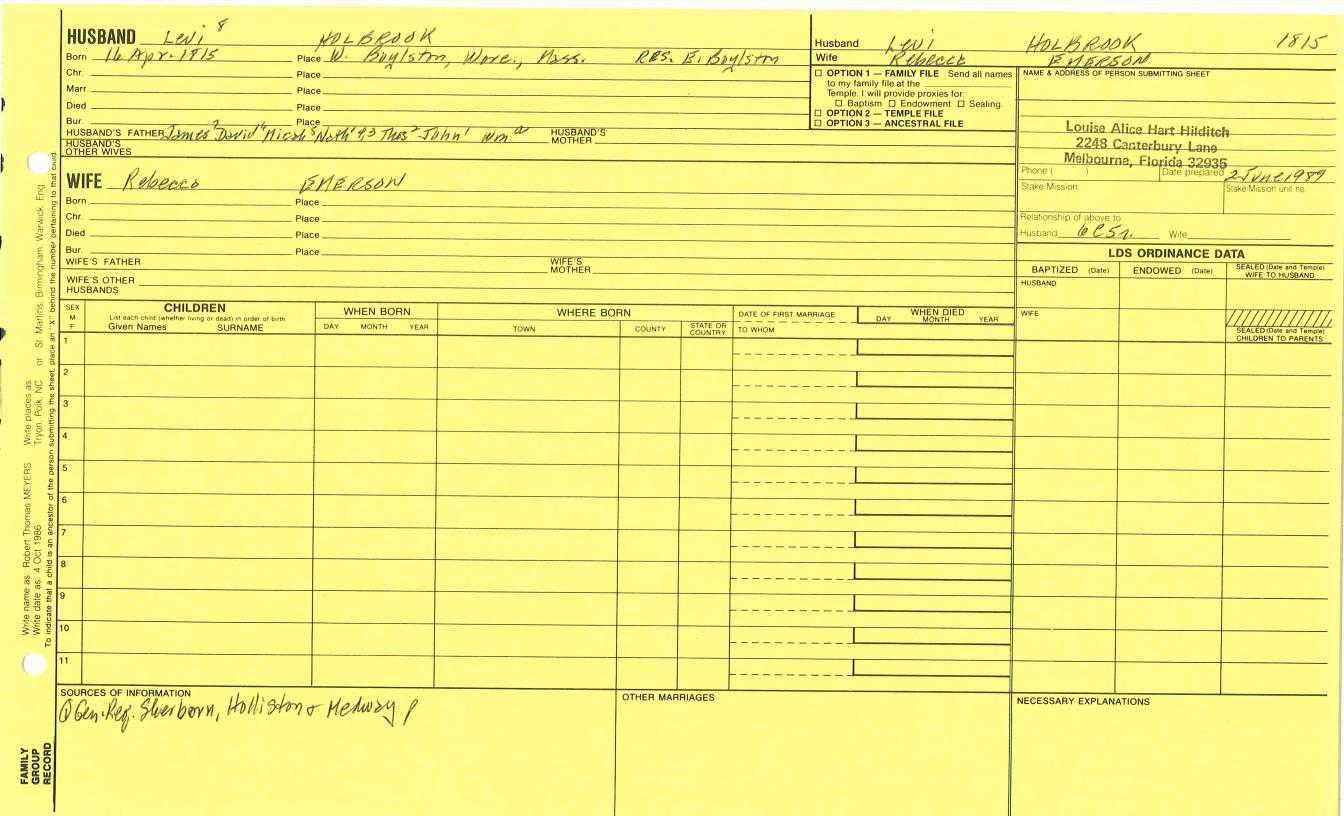 HUSBAND Levi 8 HOLBROOK
Born 16 Apr. 1815 Place W. Boylston, Worc., Mass. RES. E. Boylston
Chr. Place
Marr. Place
Died Place
Bur. Place
HUSBAND'S FATHER James 7 David 6 Micah 5 Nath'l 4,3 Thos 2 John 1 Wm a HUSBAND'S MOTHER
HUSBAND'S OTHER WIVES
Husband Levi HOLBROOK 1815
Wife Rebecca EMERSON
☐ OPTION 1 — FAMILY FILE Send all names
to my family file at the
Temple. I will provide proxies for:
☐ Baptism ☐ Endowment ☐ Sealing.
☐ OPTION 2 — TEMPLE FILE
☐ OPTION 3 — ANCESTRAL FILE
NAME & ADDRESS OF PERSON SUBMITTING SHEET
Louise Alice Hart Hilditch
2248 Canterbury Lane
Melbourne, Florida 32935
Phone ( ) Date prepared 2 June 1989
Stake Mission Stake Mission unit no.
Relationship of above to
Husband 6C5r. Wife
WIFE Rebecca EMERSON
Born Place
Chr. Place
Died Place
Bur. Place
WIFE'S FATHER WIFE'S MOTHER
WIFE'S OTHER HUSBANDS
LDS ORDINANCE DATA
BAPTIZED (Date) ENDOWED (Date) SEALED (Date and Temple) WIFE TO HUSBAND
HUSBAND
WIFE
SEALED (Date and Temple) CHILDREN TO PARENTS
SEX M F
CHILDREN
List each child (whether living or dead) in order of birth
Given Names SURNAME
WHEN BORN
DAY MONTH YEAR
WHERE BORN
TOWN COUNTY STATE OR COUNTRY
DATE OF FIRST MARRIAGE
TO WHOM
WHEN DIED
DAY MONTH YEAR
1
2
3
4
5
6
7
8
9
10
11
SOURCES OF INFORMATION
① Gen. Reg. Sherborn, Holliston & Medway p
OTHER MARRIAGES
NECESSARY EXPLANATIONS
Write name as: Robert Thomas MEYERS Write places as: Tryon, Polk, NC or St. Martins, Birmingham, Warwick, Eng.
Write date as: 4 Oct 1986
To indicate that a child is an ancestor of the person submitting the sheet, place an "X" behind the number pertaining to that child.
FAMILY
GROUP
RECORD